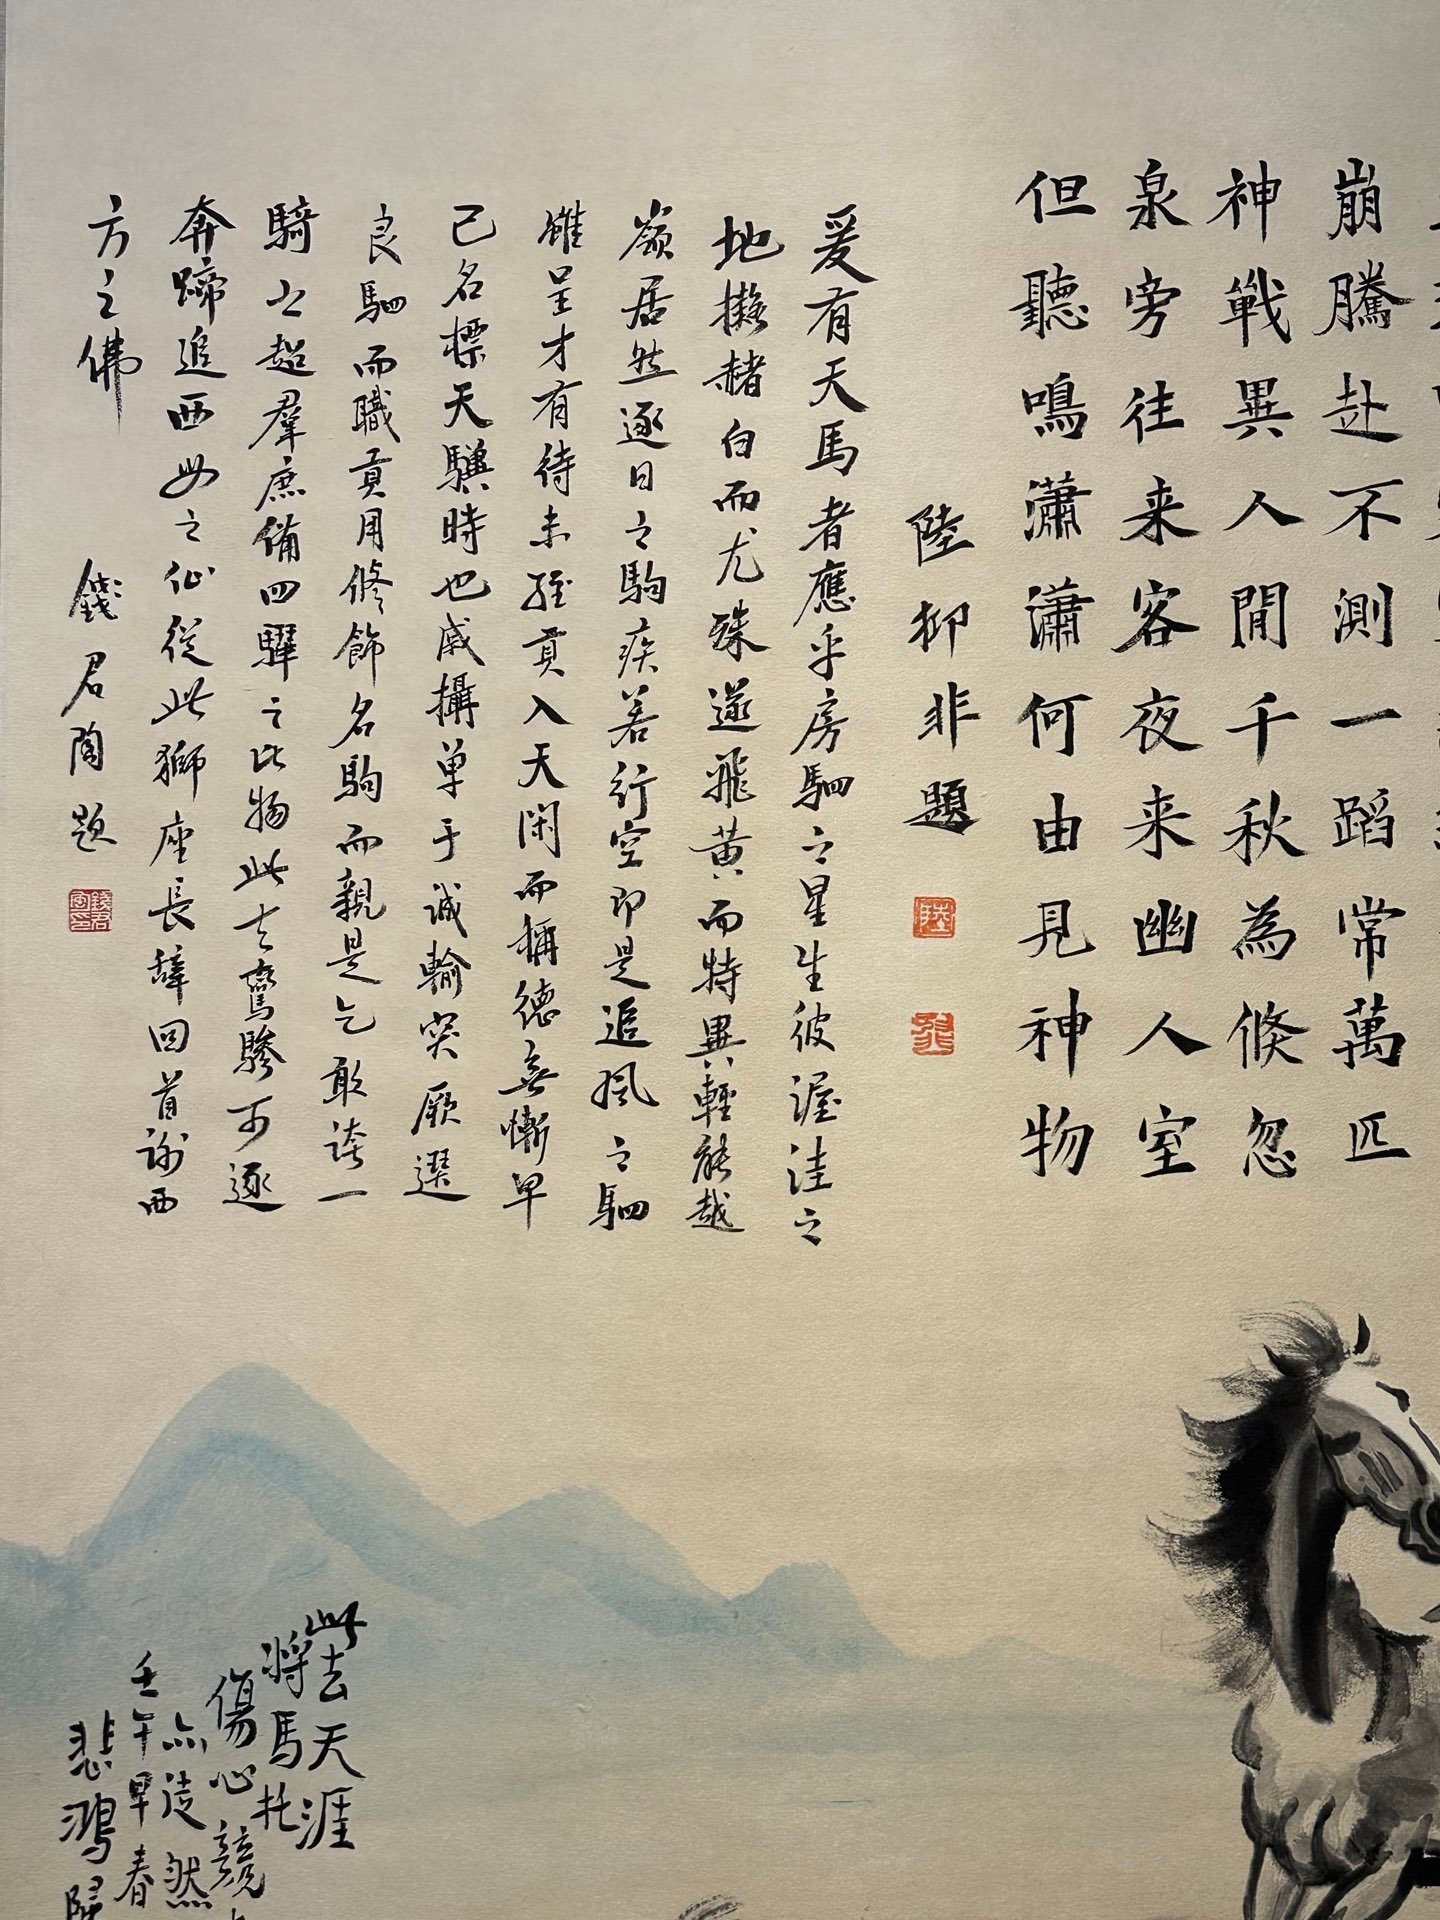 崩騰赴不測一蹈常萬匹
神戰異人間千秋為倏忽
泉旁往来客夜来幽人室
但聽鳴瀟瀟何由見神物
陸抑非題
爰有天馬者應乎房駟之星生彼渥洼之
地擬赭白而尤殊遂飛黃而特異輕能越
嶺居然逐日之駒疾若行空即是追風之駟
雖呈才有待未經貢入天閑而稱德無慚早
已名標天驥時也威攝單于誠輸突厥選
良駟而職貢用修飾名駒而親是乞敢誇一
騎之超羣庶備四驛之比物此之驚驂可逐
奔蹄追西母之仙從此獅座長辭回首謝西
方之佛
錢君陶題
此去天涯
將馬托
傷心競
亦徒然
壬午早春
悲鴻歸